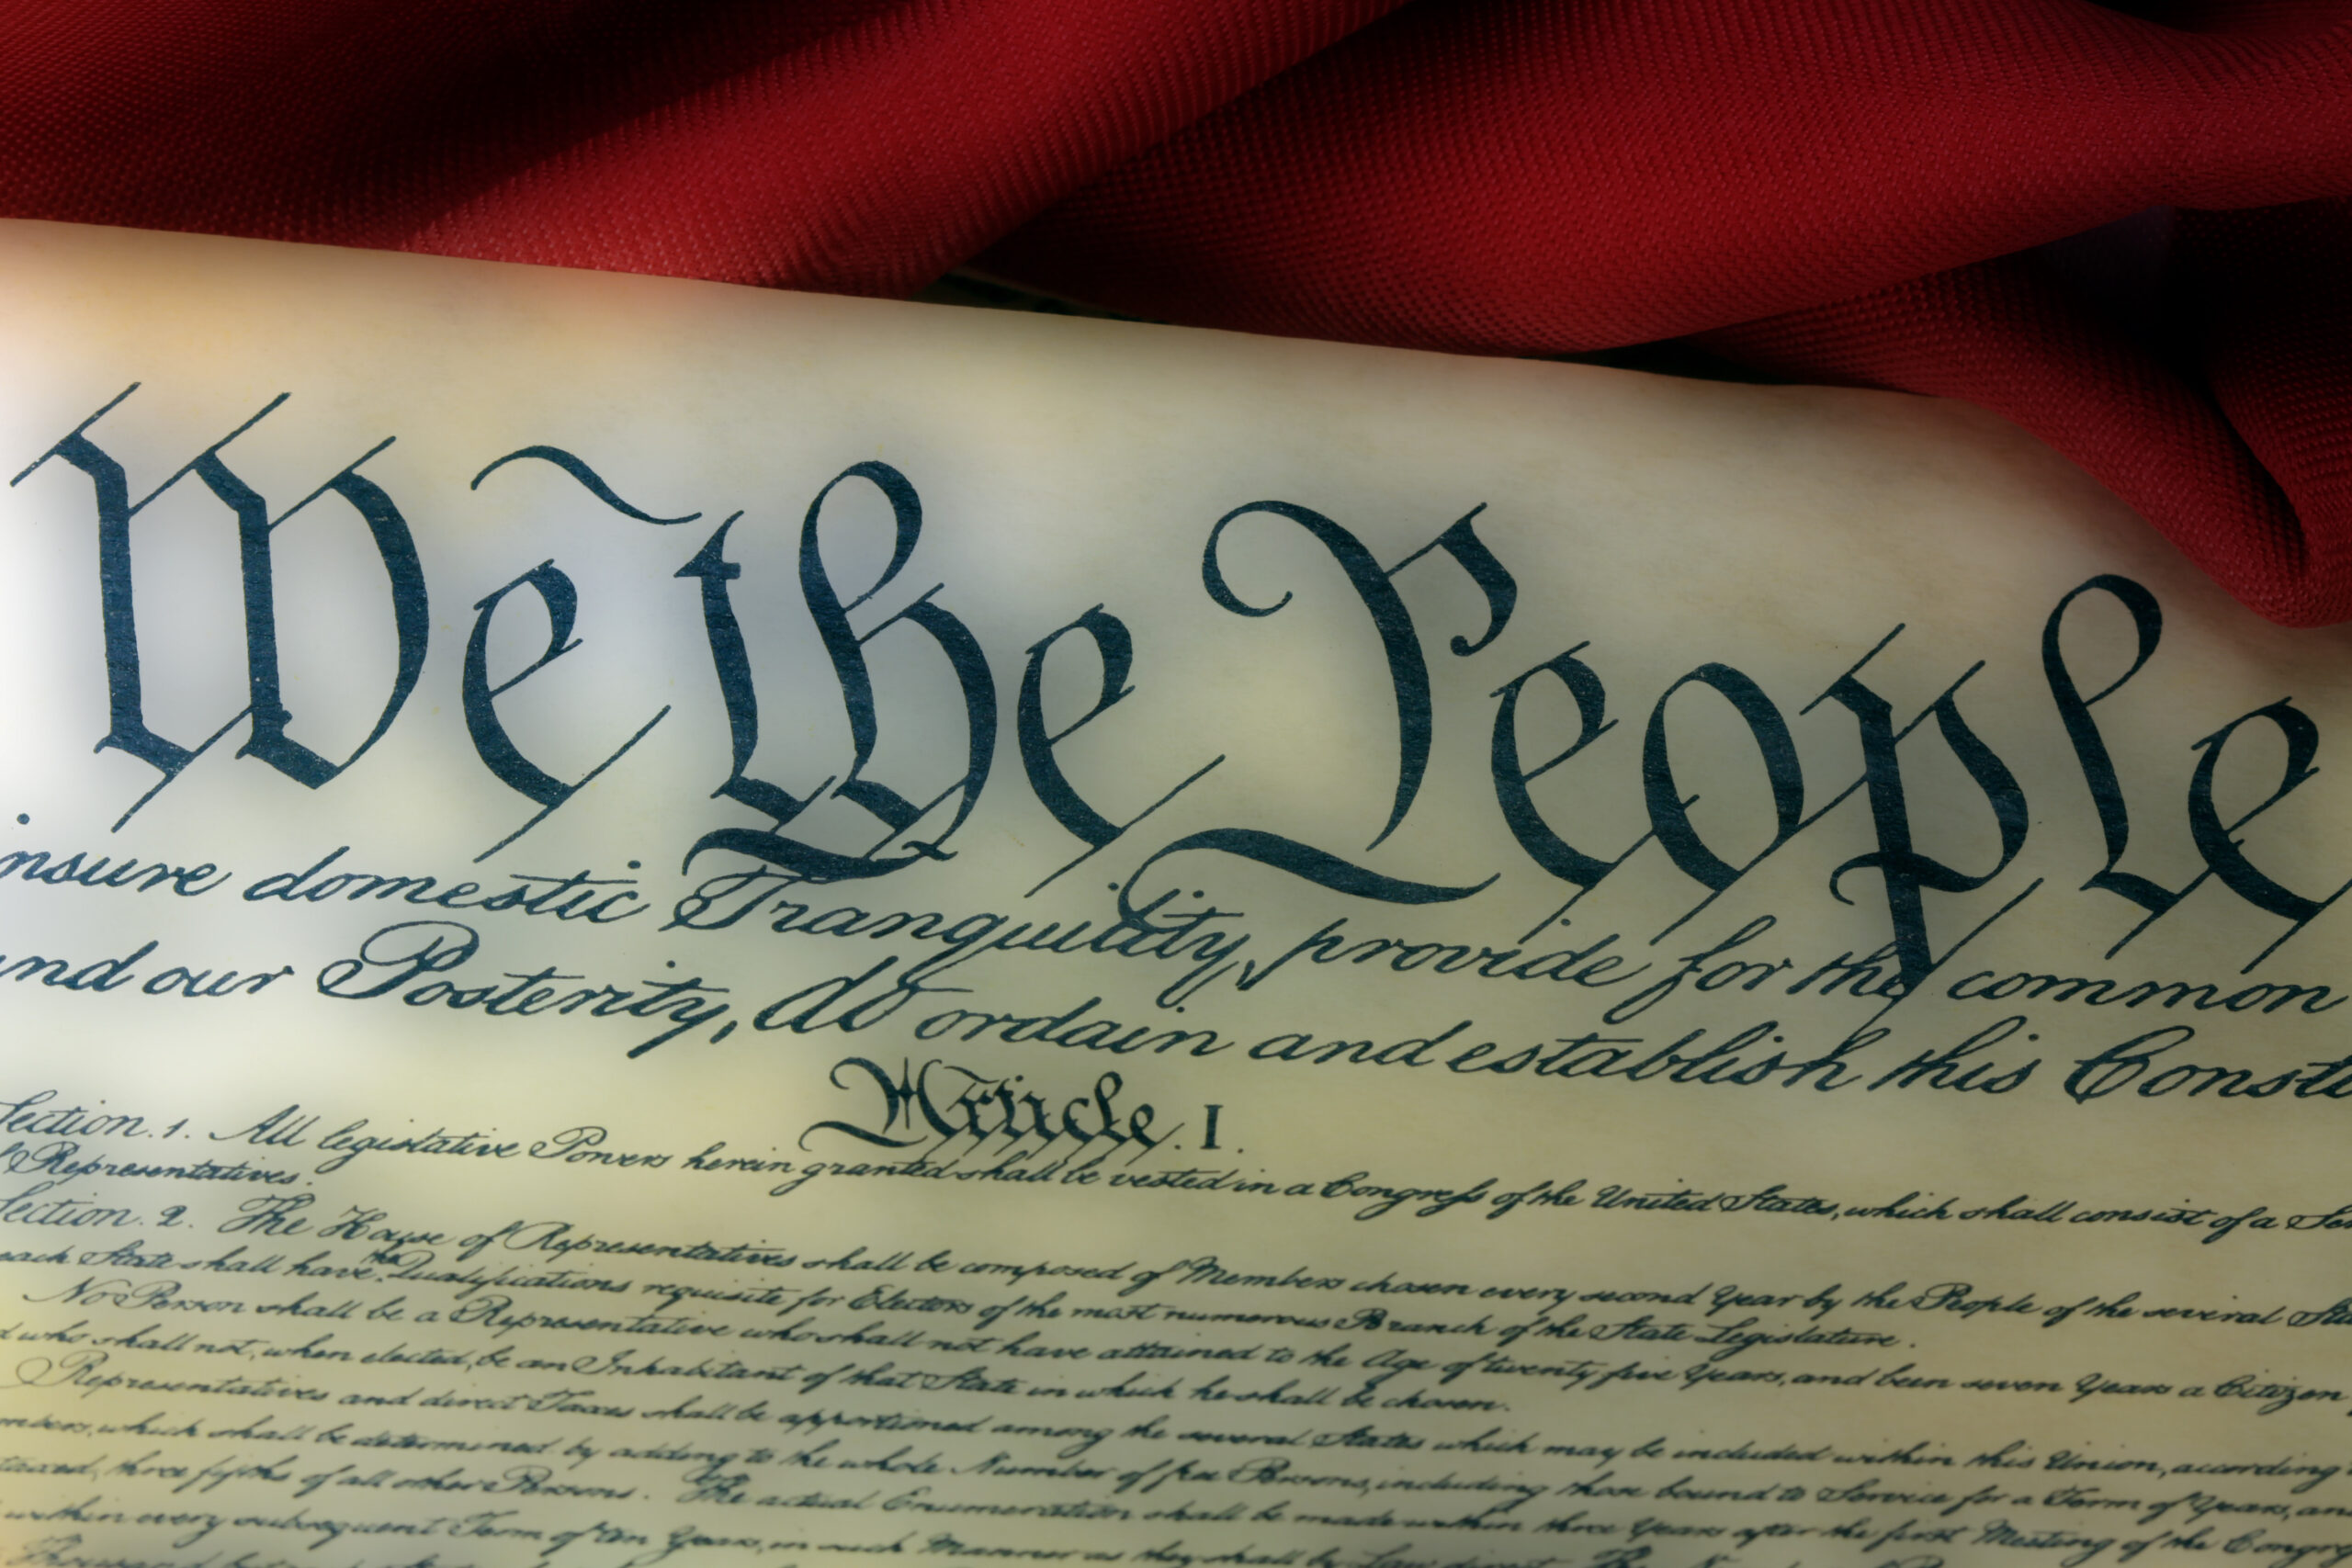 We the People
insure domestic Tranquility, provide for the common
and our Posterity, do ordain and establish this Constit
Article. I.
Section. 1. All legislative Powers herein granted shall be vested in a Congress of the United States, which shall consist of a Sen
Representatives.
Section. 2. The House of Representatives shall be composed of Members chosen every second Year by the People of the several Sta
each State shall have the Qualifications requisite for Electors of the most numerous Branch of the State Legislature.
No Person shall be a Representative who shall not have attained to the Age of twenty five Years, and been seven Years a Citizen
d who shall not, when elected, be an Inhabitant of that State in which he shall be chosen.
Representatives and direct Taxes shall be apportioned among the several States which may be included within this Union, according
mbers, which shall be determined by adding to the whole Number of free Persons, including those bound to Service for a Term of Years, an
taxed, three fifths of all other Persons. The actual Enumeration shall be made within three Years after the first Meeting of the Congr
within every subsequent Term of ten Years, in such Manner as they shall by Law direct. The
Thousand